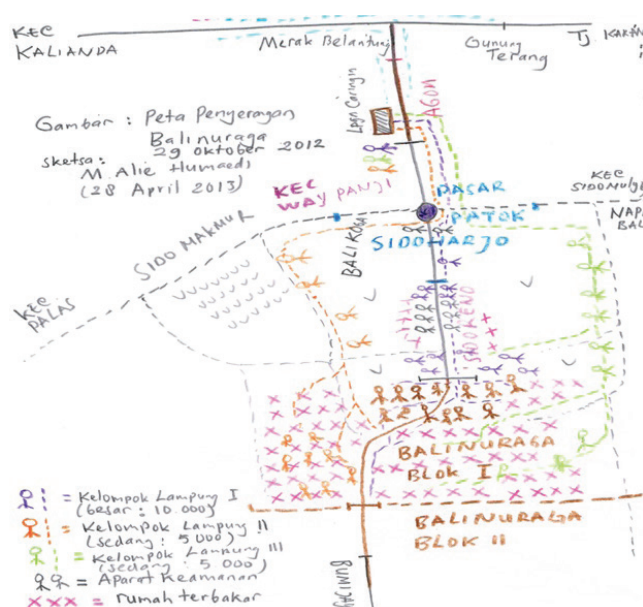 KEC
KALIANDA
Merak Belantung
Gunung
Terang
Tj
Lpgn Caringin
AGOM
Gambar : Peta Penyerangan
Balinuraga
29 oktober 2012
sketsa:
M. Alie Humaedi
(28 April 2013)
KEC
WAY PANJI
PASAR
PATOK
KEC
SIDOMAKMUR
BALIKOU
SIDOHARJO
KEC
PALAS
SIDORENO
BALINURAGA
BLOK I
BALINURAGA
BLOK II
= Kelompok Lampung I
(besar : 10.000)
= Kelompok Lampung II
(sedang : 5000)
= Kelompok Lampung III
(sedang : 5000)
= Aparat Keamanan
XXX = rumah terbakar